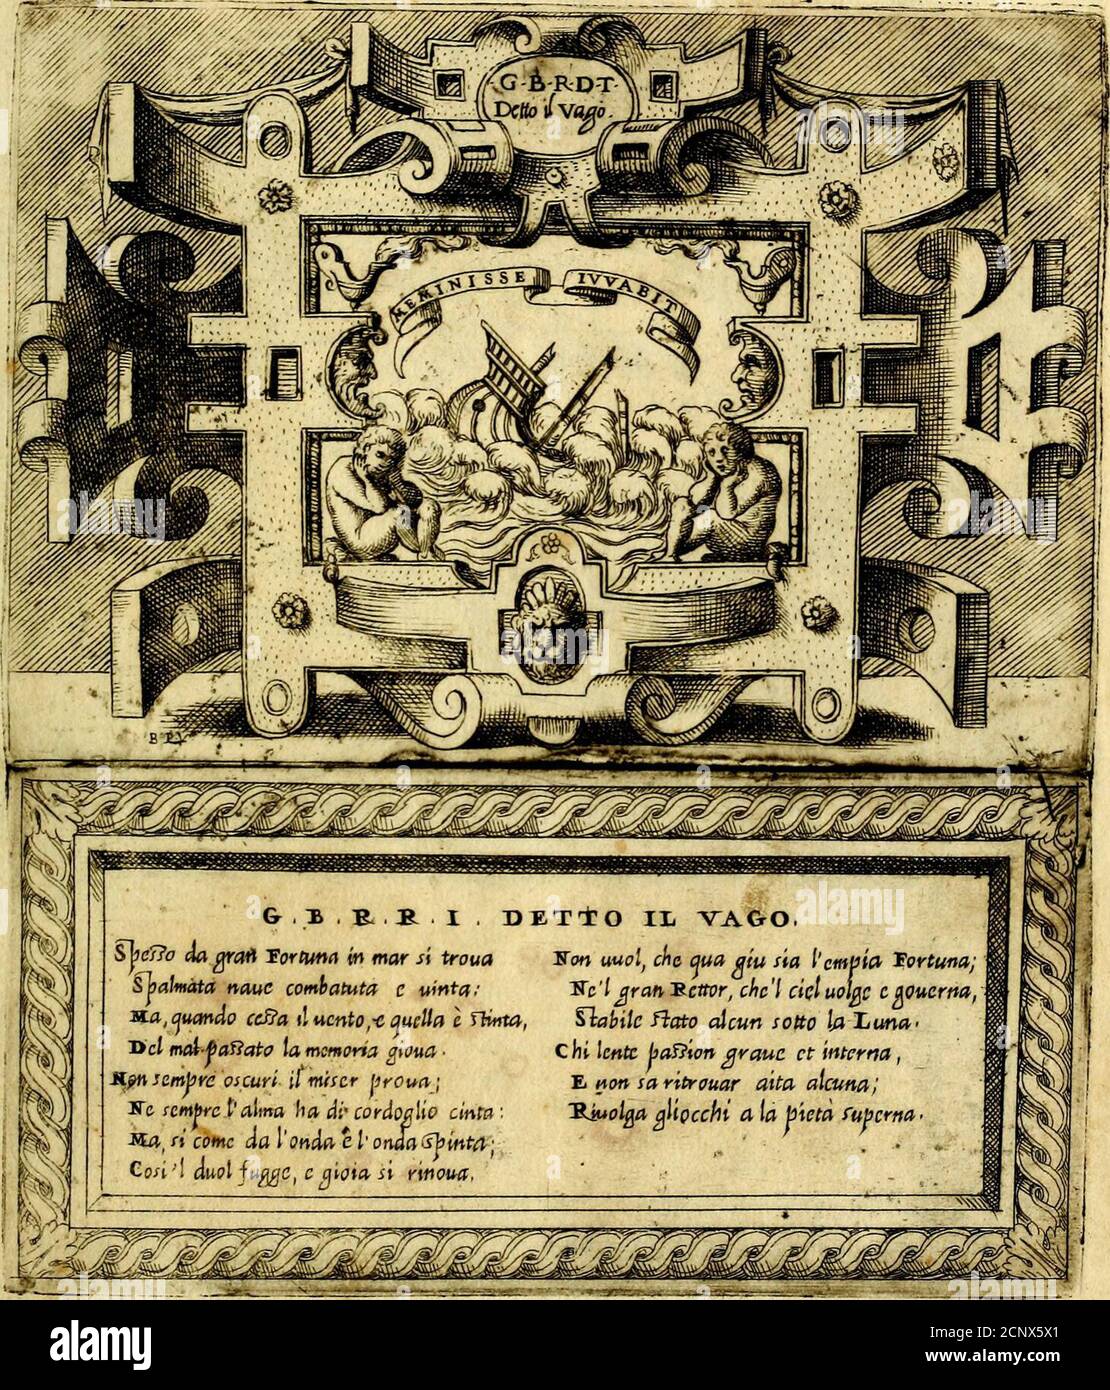 G·B·R·D·T·
Detto il Vago.
MEMINISSE IVVABIT
B P V
G . B . R . R . I . DETTO IL VAGO.
Spesso da gran Fortuna in mar si troua
Spalmata naue combatuta e uinta:
Ma, quando cessa il uento, e quella è stinta,
Del mal passato la memoria gioua.
Non sempre oscuri il miser proua;
Ne sempre l'alma ha di cordoglio cinta:
Ma, si come da l'onda è l'onda spinta;
Cosi 'l duol fugge, e gioia si rinoua.
Non uuol, che qua giu sia l'empia Fortuna;
Ne'l gran Rettor, che'l ciel uolge e gouerna,
Stabile stato alcun sotto la Luna.
Chi sente passion graue et interna,
E non sa ritrouar aita alcuna;
Riuolga gliocchi a la pietà superna.
alamy
Image ID: 2CNX5X1
www.alamy.com